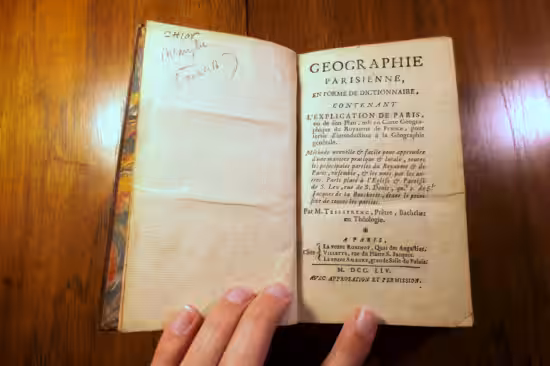 GEOGRAPHIE
PARISIENNE,
EN FORME DE DICTIONNAIRE,
CONTENANT
L'EXPLICATION DE PARIS,
ou de son Plan, mis en Carte Géogra-
phique du Royaume de France, pour
servir d'introduction à la Géographie
générale.
Méthode nouvelle & facile pour apprendre
d'une maniere pratique & locale, toutes
les principales parties du Royaume & de
Paris, ensemble, & les unes par les au-
tres. Paris placé à l'Eglise & Paroisse
de S. Leu, rue de S. Denis,
Jacques de la Boucherie, étant le
de toutes les parties.
Par M. TEISSERENC, Prêtre, Bachelier
en Théologie.
A PARIS,
Chez La veuve ROBINOT, Quai des Augustins.
rue du Plâtre S. Jacques.
La veuve AMAURY, grande Salle du Palais.
M. DCC. LIV.
AVEC APPROBATION ET PERMISSION.